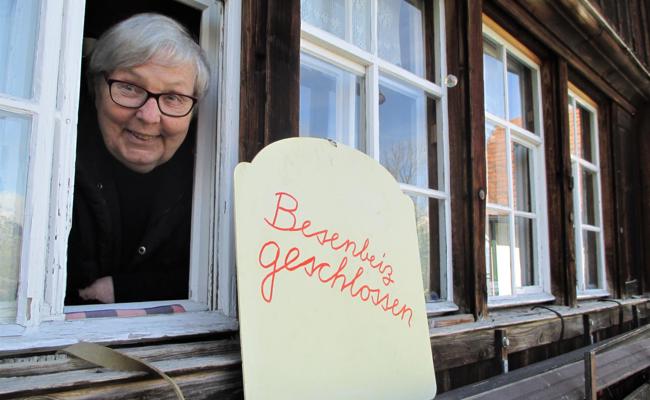 Besenbeiz
geschlossen